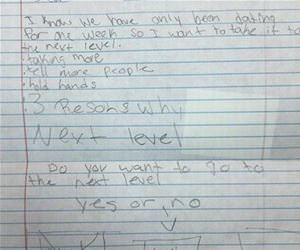 I know we have only been dating
for one week so I want to take it to
the next level.
·talking more
·tell more people
·hold hands
3 Resons why
Next level
Do you want to go to
the next level
yes or no